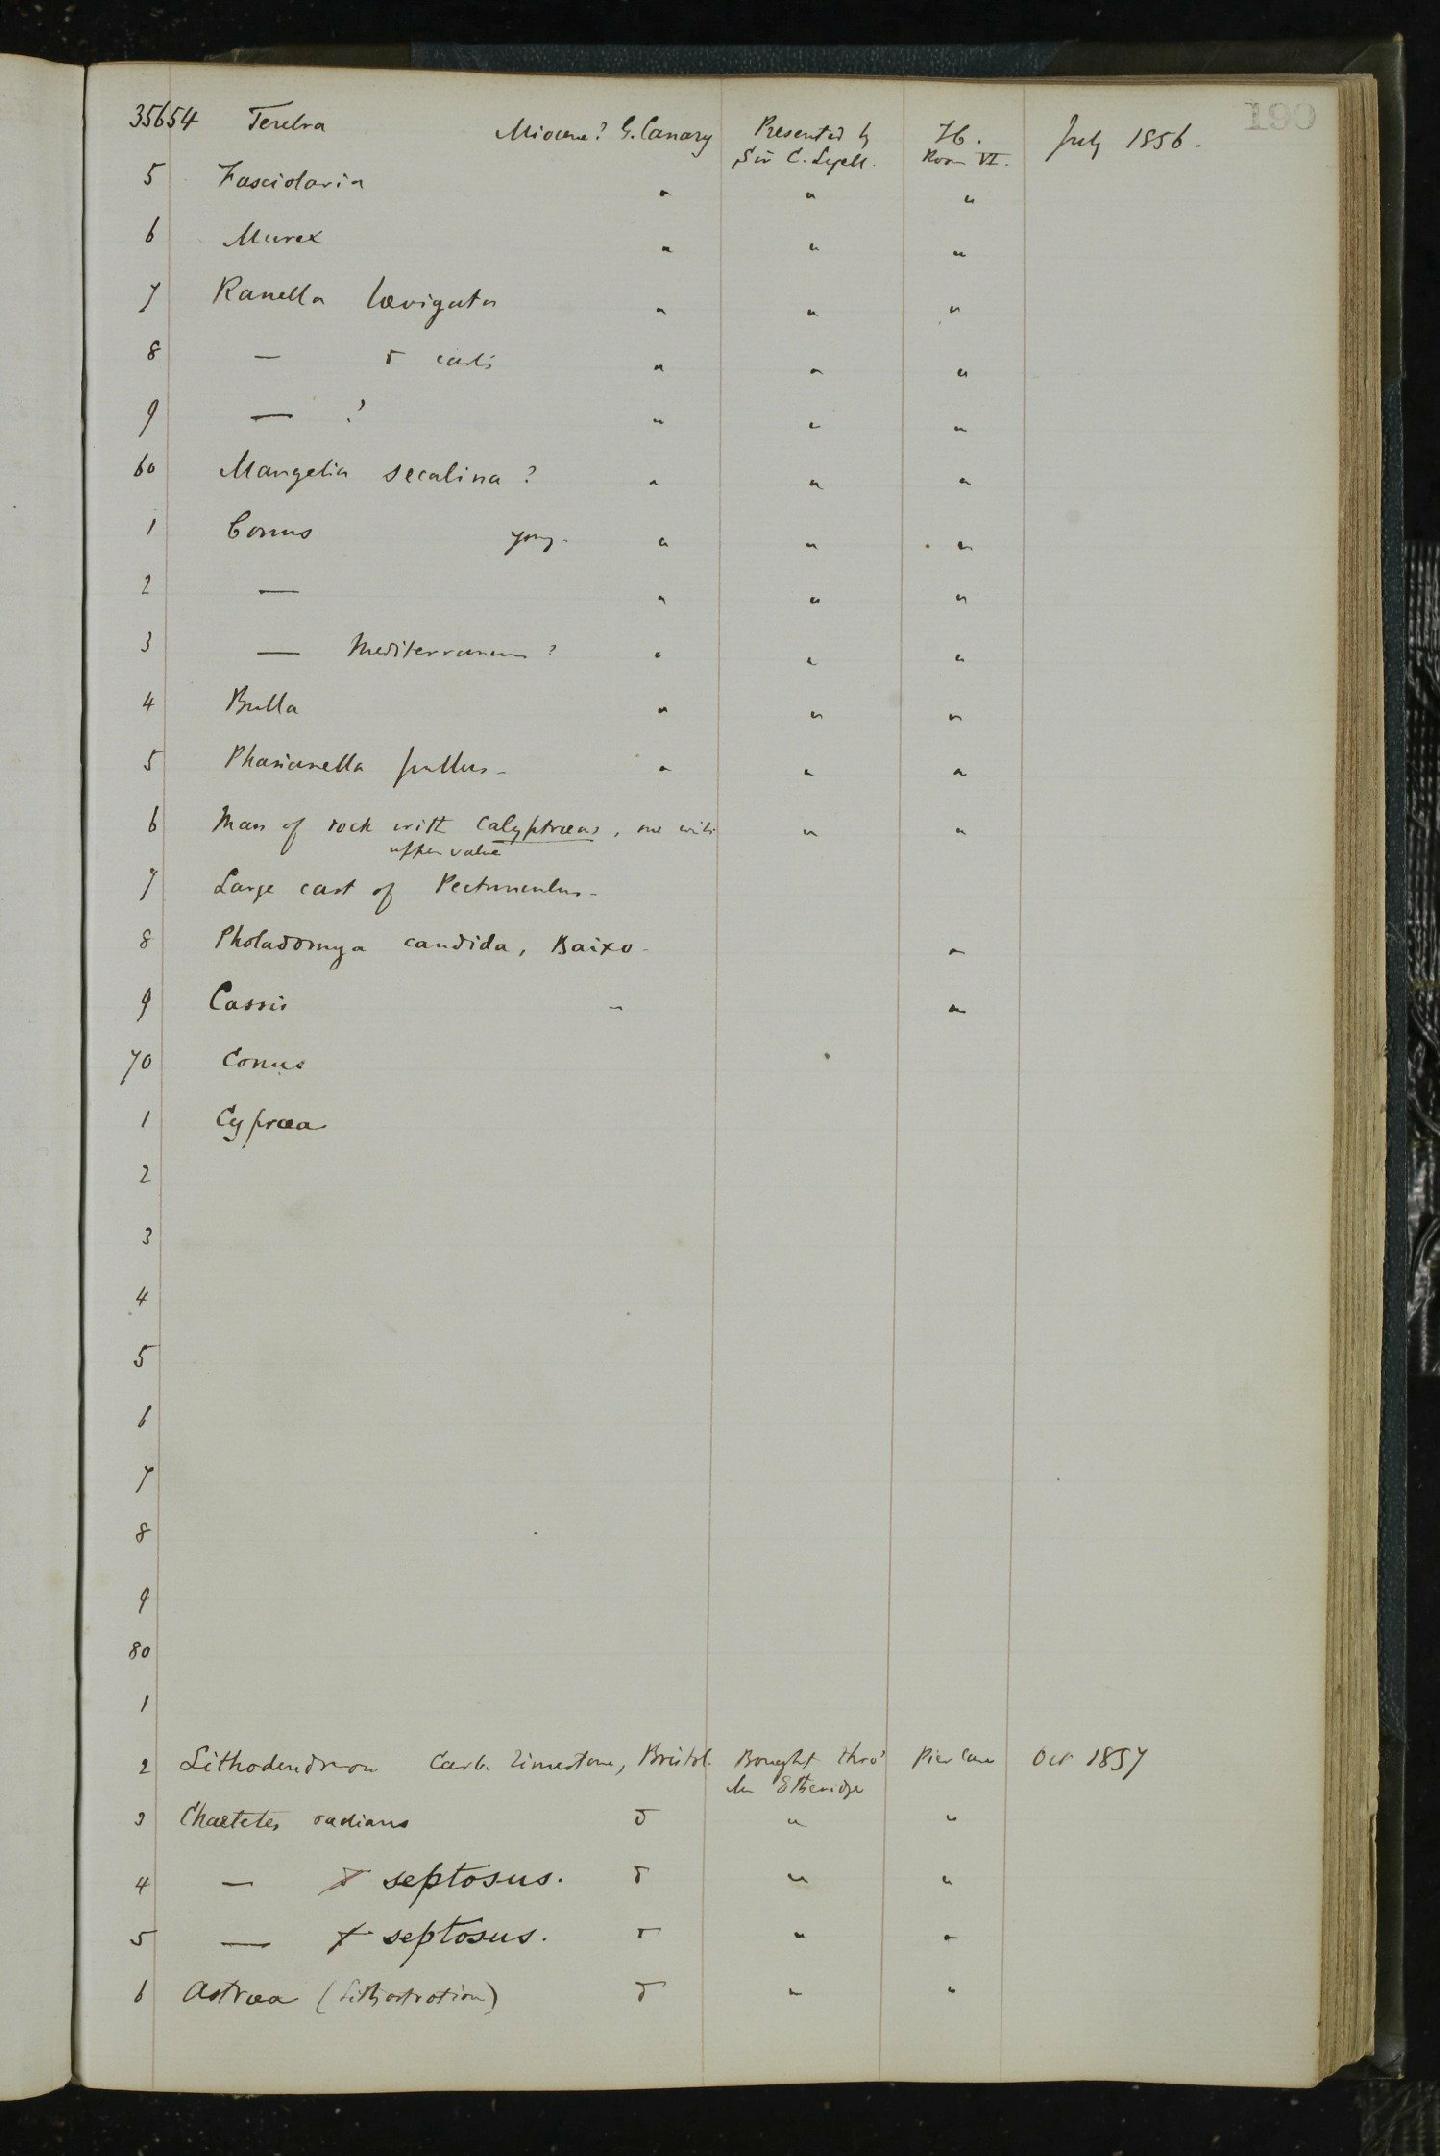 190
35654 Terebra Miocene? G. Canary Presented by Sir C. Lyell. Room VI. July 1856.
5 Fasciolaria " " "
6 Murex " " "
7 Ranella lævigata " " "
8 — " " "
9 — ? " " "
60 Mangelia secalina? " " "
1 Conus young. " " "
2 — " " "
3 — Mediterraneus? " " "
4 Bulla " " "
5 Phasianella pullus - " " "
6 Mass of rock with Calyptræas, one with " "
upper valve
7 Large cast of Pectunculus -
8 Pholadomya candida, Baixo - "
9 Cassis " "
70 Conus
1 Cypræa
2
3
4
5
6
7
8
9
80
1
2 Lithodendron Carb. limestone, Bristol. Bought thro' Oct 1857
Mr Etheridge
3 Chaetetes radians " "
4 — septosus. " "
5 — septosus. " "
6 Astræa (Lithostrotion) " "